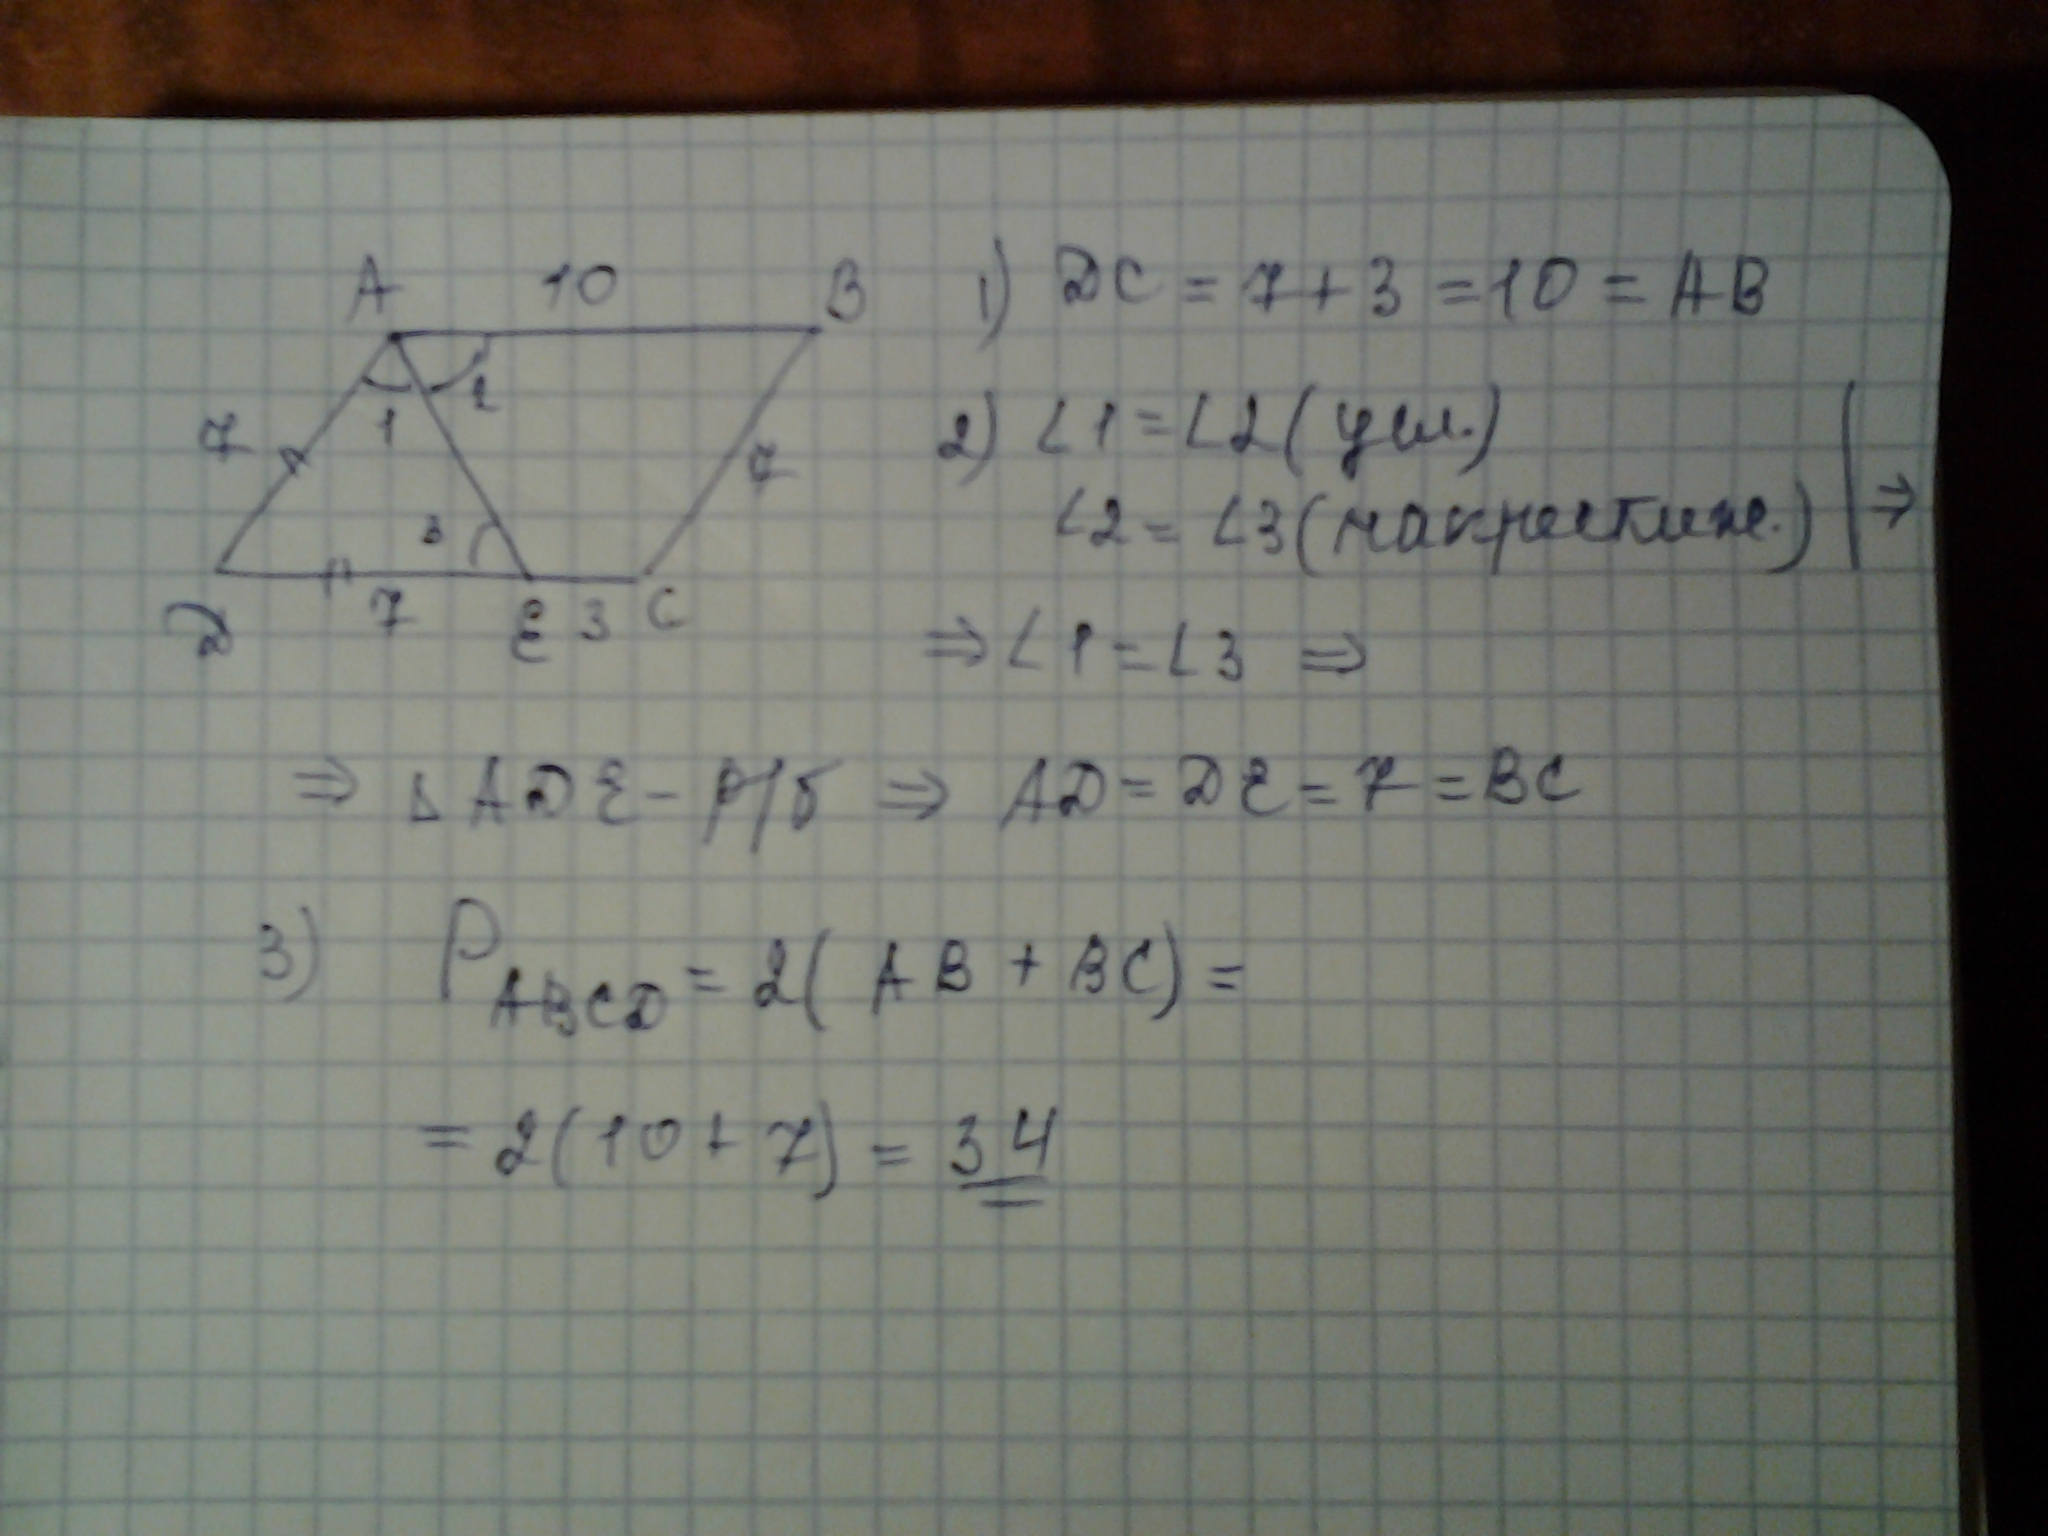 A 10 B
7 1 2 7
3
D 7 E 3 C
1) DC = 7+3 = 10 = AB
2) ∠1 = ∠2 (усл.)
∠2 = ∠3 (накрестлеж.) | ⇒
⇒ ∠1 = ∠3 ⇒
⇒ △ADE - р/б ⇒ AD = DE = 7 = BC
3) P ABCD = 2( AB + BC) =
= 2(10 + 7) = 34